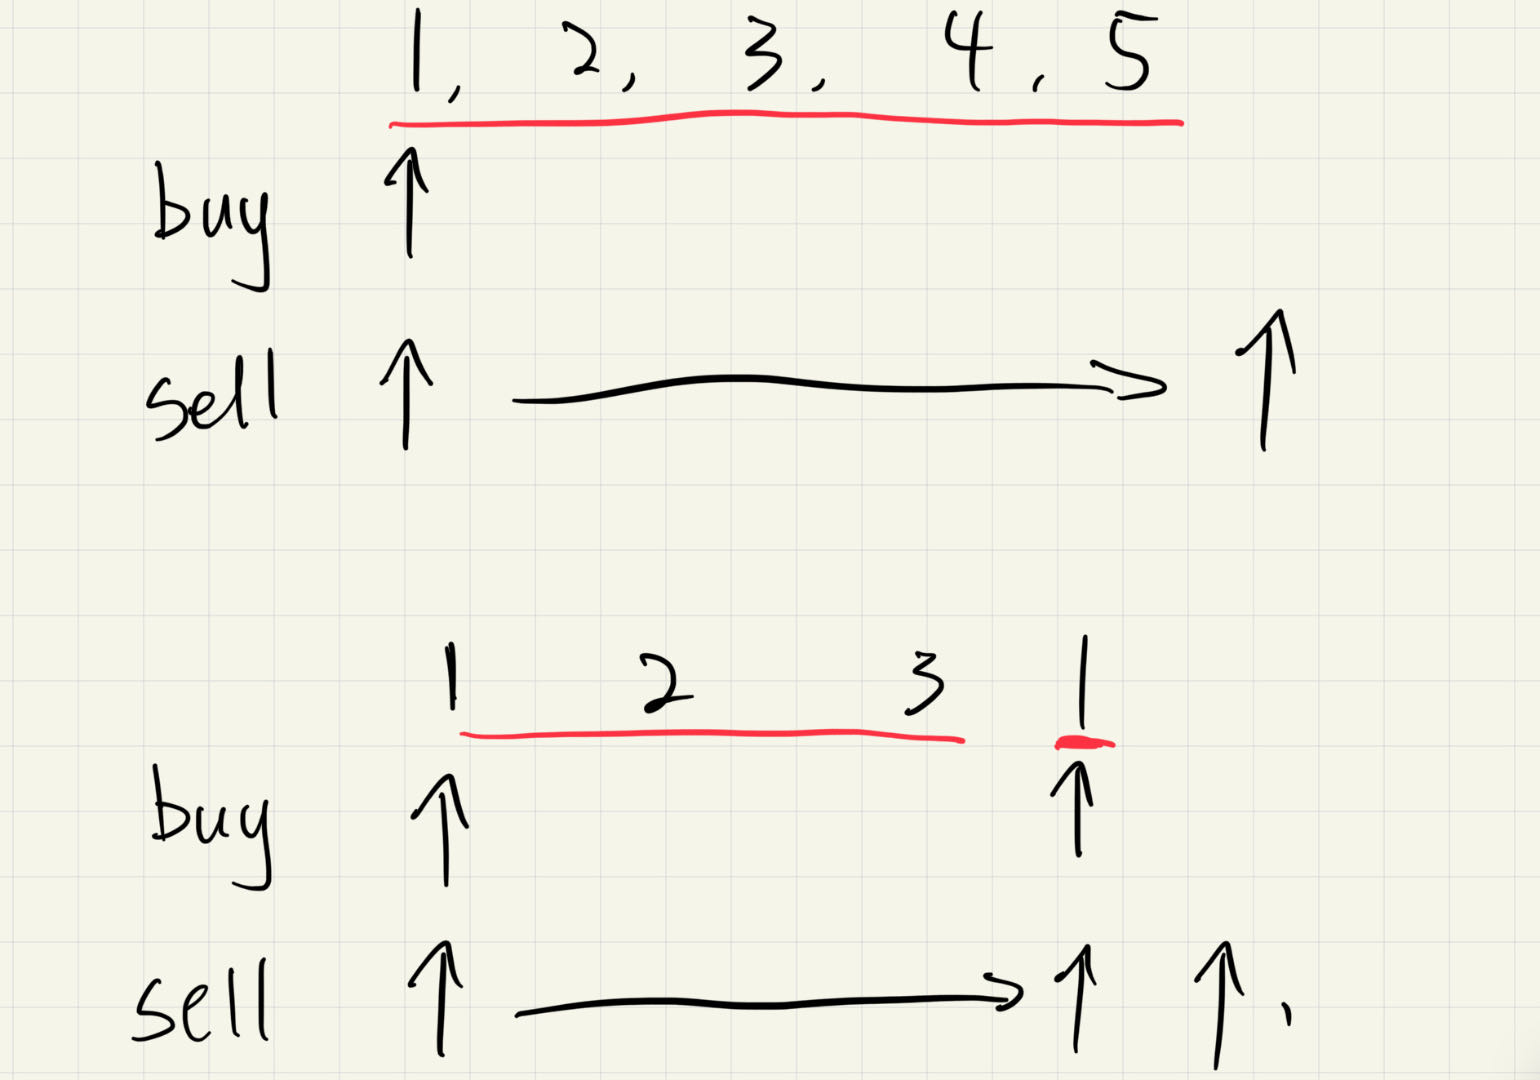 1, 2, 3, 4, 5
buy
sell
1 2 3 1
buy
sell